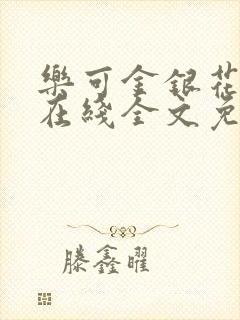 樂可金銀花
在綫全文免
滕鑫曜